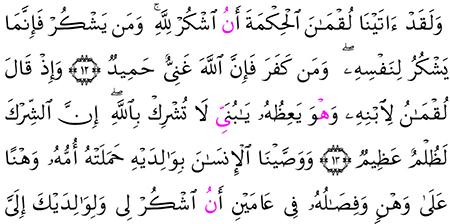 وَلَقَدْ ءَاتَيْنَا لُقْمَٰنَ ٱلْحِكْمَةَ أَنُ ٱشْكُرْ لِلَّهِۚ وَمَن يَشْكُرْ فَإِنَّمَا
يَشْكُرُ لِنَفْسِهِۦۖ وَمَن كَفَرَ فَإِنَّ ٱللَّهَ غَنِيٌّ حَمِيدٌ ﴿١٢﴾ وَإِذْ قَالَ
لُقْمَٰنُ لِٱبْنِهِۦ وَهْوَ يَعِظُهُۥ يَٰبُنَيِّ لَا تُشْرِكْ بِٱللَّهِۖ إِنَّ ٱلشِّرْكَ
لَظُلْمٌ عَظِيمٌ ﴿١٣﴾ وَوَصَّيْنَا ٱلْإِنسَٰنَ بِوَٰلِدَيْهِ حَمَلَتْهُ أُمُّهُۥ وَهْنًا
عَلَىٰ وَهْنٍ وَفِصَٰلُهُۥ فِي عَامَيْنِ أَنُ ٱشْكُرْ لِي وَلِوَٰلِدَيْكَ إِلَيَّ